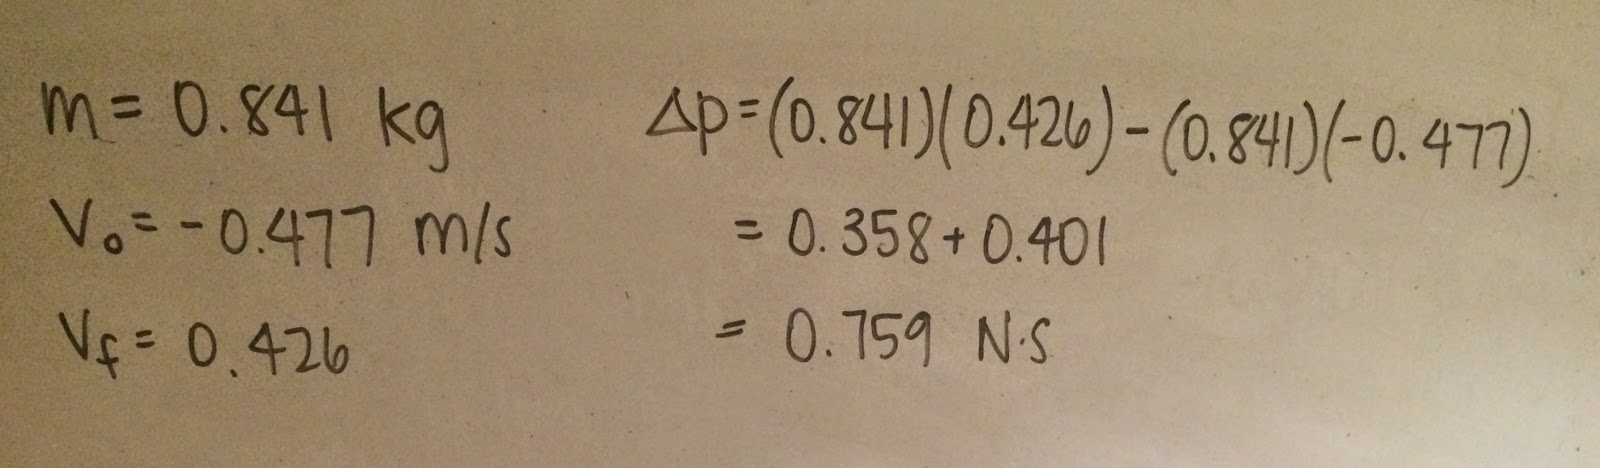 m = 0.841 kg
V₀ = -0.477 m/s
Vf = 0.426
Δp = (0.841)(0.426) - (0.841)(-0.477)
= 0.358 + 0.401
= 0.759 N·s